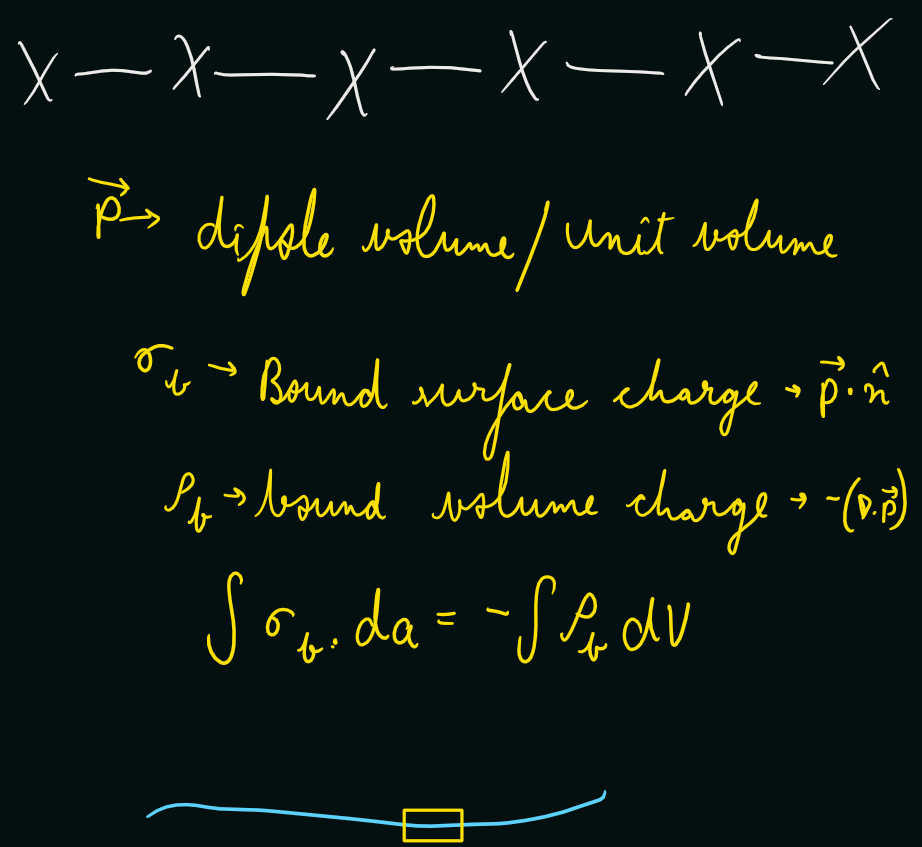 X — X — X — X — X — X
p⃗ → dipole volume / unit volume
σ_b → Bound surface charge → p⃗ · n̂
ρ_b → bound volume charge → -(∇·p⃗)
∫ σ_b · da = -∫ ρ_b dV